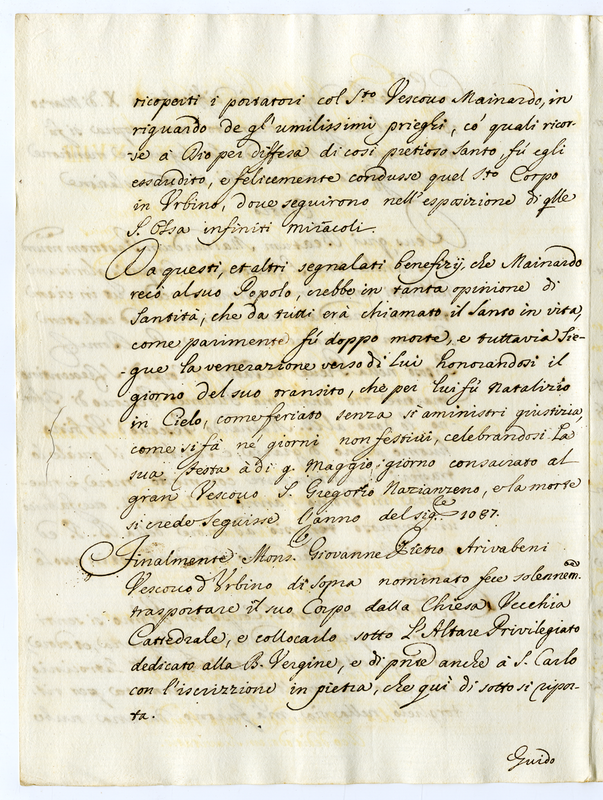 ricoperti i portatori col S.to Vescovo Mainardo, in
riguardo de gl'umilissimi prieghi, co' quali ricor-
-se à Dio per diffesa di così pietioso Santo, fù egli
essaudito, e felicemente condusse quel S.to Corpo
in Urbino, dove seguirono nell'esposizione di q̃lle
S. Ossa infiniti miracoli.
Da questi, et altri segnalati benefizij, che Mainardo
recò al suo Popolo, crebbe in tanta opinione di
Santità, che da tutti era chiamato il Santo in vita,
come parimente fù doppo morte, e tuttavia Sie-
-gue la venerazione verso di lui honorandosi il
giorno del suo transito, che per lui fù Natalizio
in Cielo, come feriato senza si aministri giustizia,
come si fà ne' giorni non festivi, celebrandosi La
sua festa à dì 9. Maggio, giorno consacrato al
gran Vescovo S. Gregorio Nazianzeno, e la morte
si crede seguisse l'anno del sig.re 1087.
Finalmente Mons.r Giovanne Pietro Arivabeni
Vescovo d'Urbino di sopra nominato fece solennem.
trasportare il suo Corpo dalla Chiesa Vecchia
Cattedrale, e collocarlo sotto L'Altare Privilegiato
dedicato alla B. Vergine, e di p̃nte anche à S. Carlo
con l'iscrizzione in pietra, che quì di sotto si ripor-
ta.
Guido